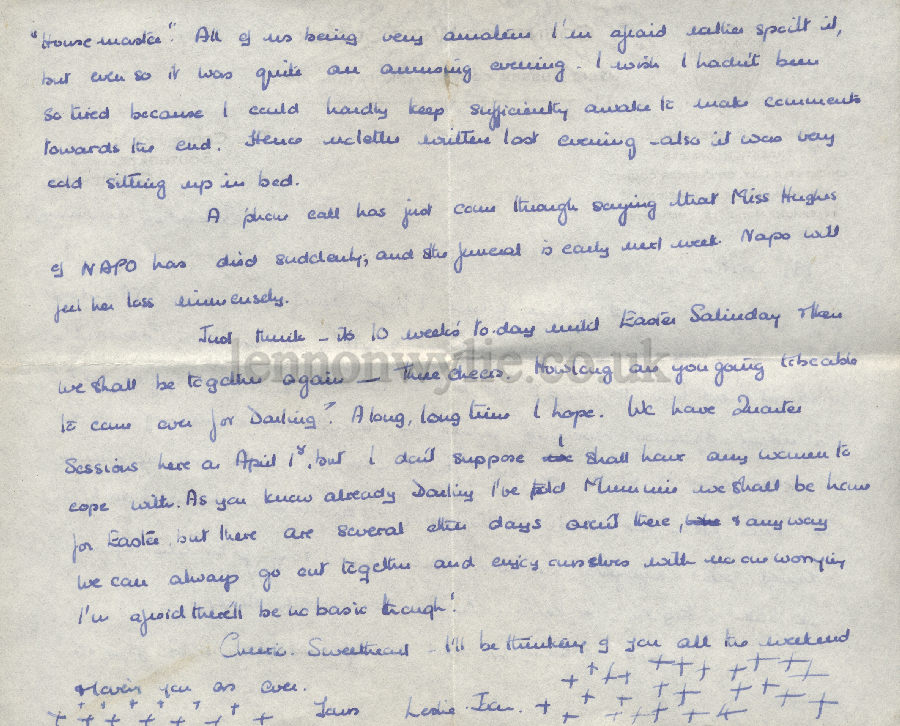 "Housemaster". All of us being very amateur I'm afraid rather spoilt it,
but even so it was quite an amusing evening. I wish I hadn't been
so tired because I could hardly keep sufficiently awake to make comments
towards the end. Hence no letter written last evening - also it was very
cold sitting up in bed.
A phone call has just come through saying that Miss Hughes
of NAPO has died suddenly, and the funeral is early next week. Napo will
feel her loss immensely.
Just think - its 10 weeks to-day until Easter Saturday when
lennonwylie.co.uk
we shall be together again - Three cheers. How long are you going to be able
to come over for Darling? A long, long time I hope. We have Quarter
Sessions here on April 1st, but I don't suppose I shall have any women to
cope with. As you know already Darling I've told Mummie we shall be home
for Easter, but there are several other days aren't there, & anyway
we can always go out together and enjoy ourselves with no one worrying
I'm afraid there'll be no basic though!
Cheerio Sweetheart - I'll be thinking of you all the weekend
you as ever.
Yours Leslie